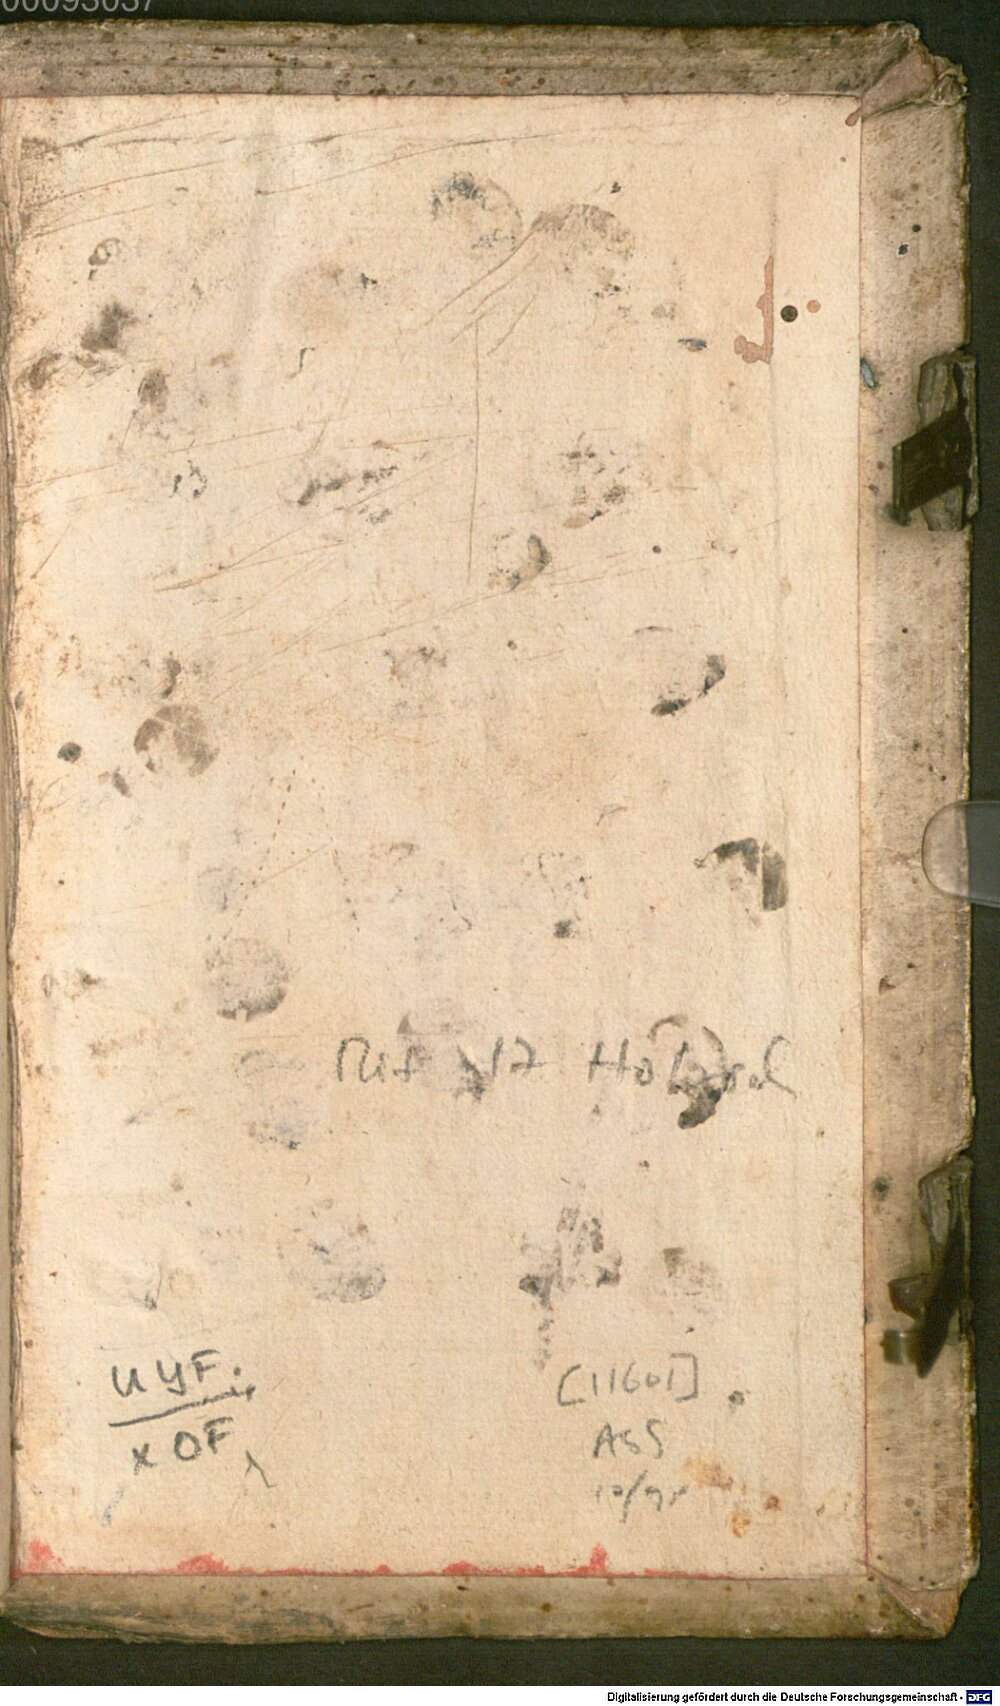 00093037
Mit 17 Holzsch
UYF.
XOF
[11601]
ASS
Digitalisierung gefördert durch die Deutsche Forschungsgemeinschaft - DFG